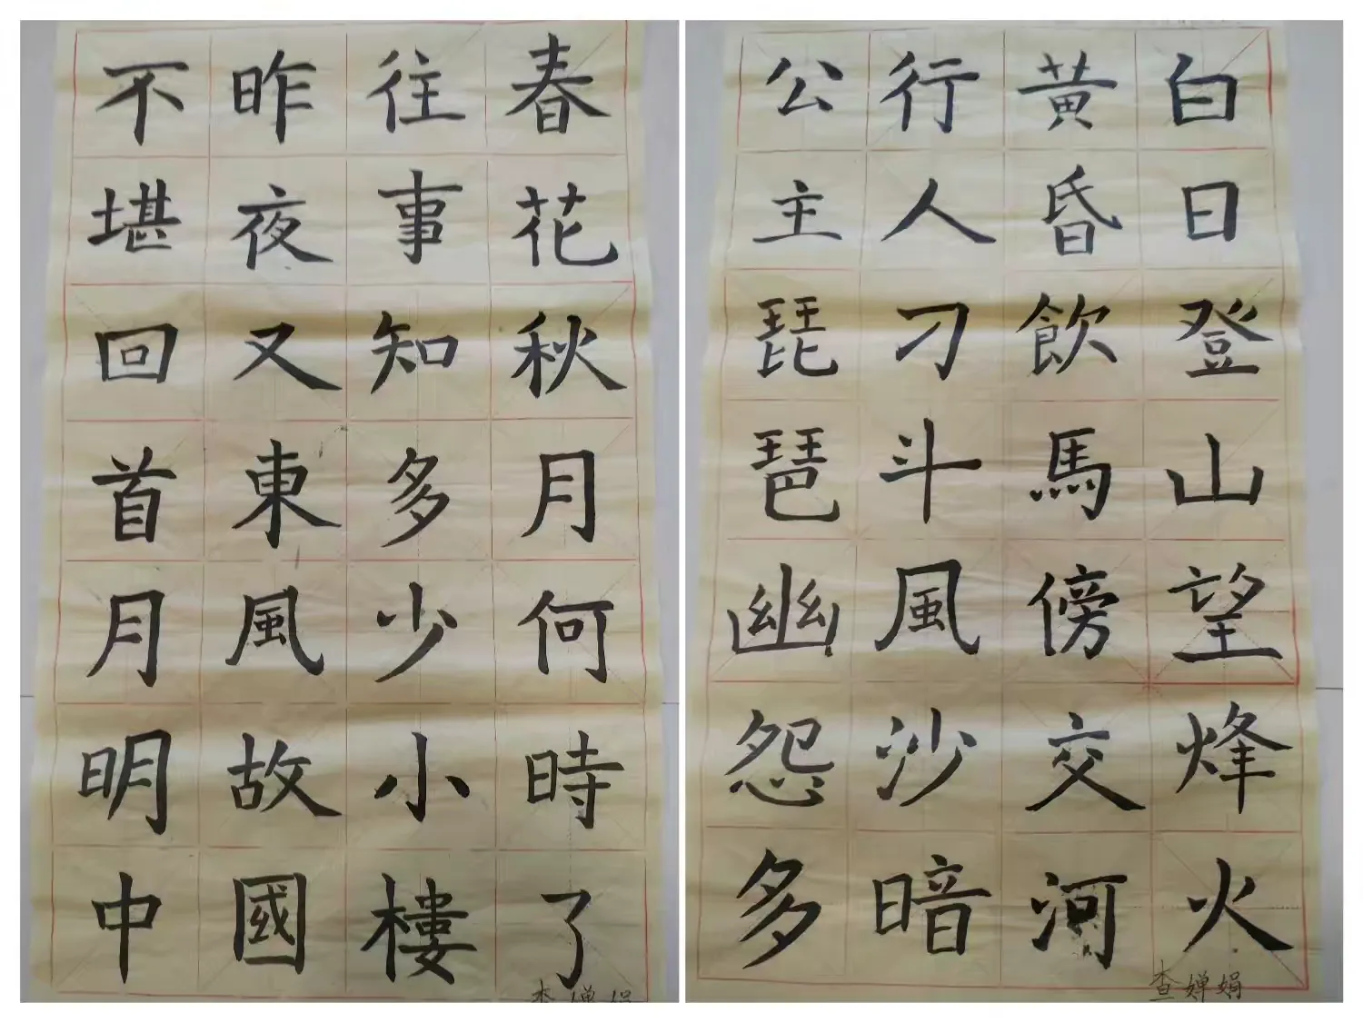 春花秋月何時了
往事知多少小樓
昨夜又東風故國
不堪回首月明中
查婵娟
白日登山望烽火
黄昏飲馬傍交河
行人刁斗風沙暗
公主琵琶幽怨多
查婵娟